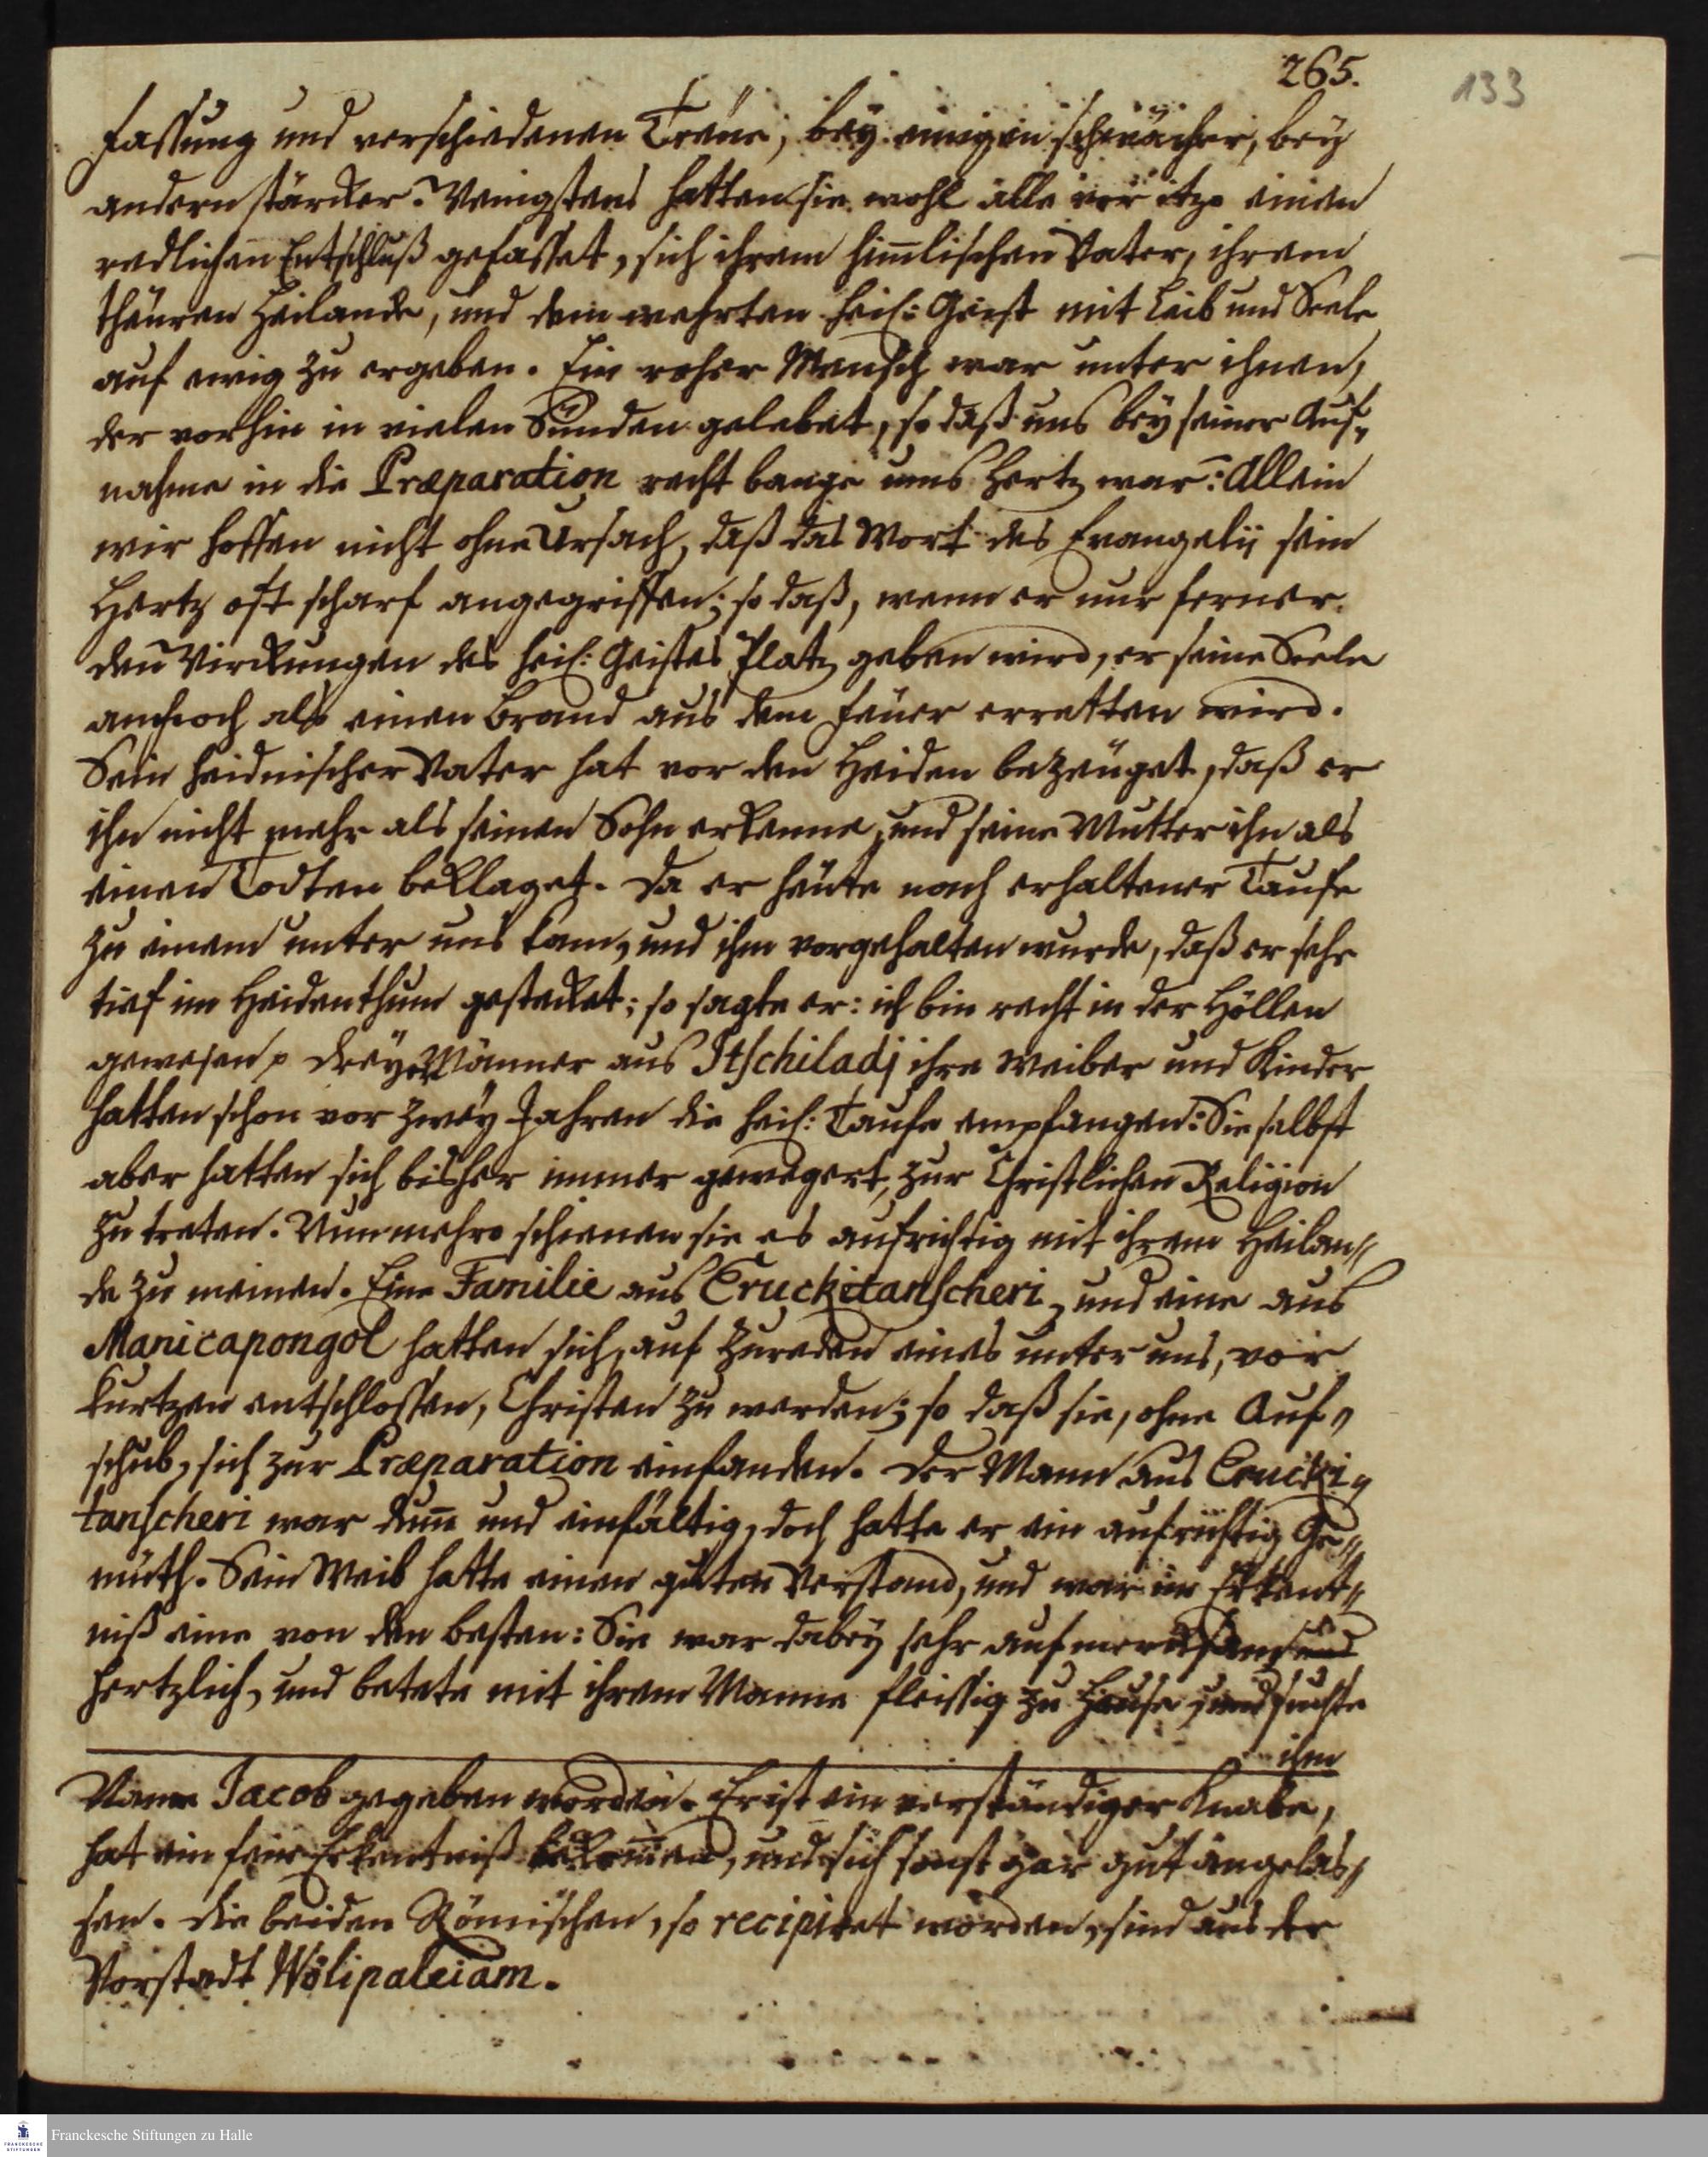 265.
133
fassung und verschiedenen Treüe; bey einigen schwächer, bey
andern stärcker. Wenigstens hatten sie wohl alle vor itzo einen
redlichen Entschluß gefasset, sich ihrem him̅lischen Vater, ihrem
theüren Heilande, und dem wehrten heil: Geist mit Leib und Seele
auf ewig zu ergeben. Ein roher Mensch war unter ihnen,
der vorhin in vielen Sünden gelebet, so daß uns bey seiner Auf„
nahme in die Præparation recht bange ums Hertz war: Allein
wir hoffen nicht ohne Ursach, daß das Wort des Evangelii sein
Hertz oft scharf angegriffen; so daß, wenn er nur ferner
den Wirckungen des heil: Geistes Platz geben wird, er seine Seele
annoch als einen Brand aus dem Feüer erretten wird.
Sein heidnischer Vater hat vor den Heiden bezeüget, daß er
ihn nicht mehr als seinen Sohn erkenne, und seine Mutter ihn als
einen Todten beklaget. Da er heüte nach erhaltener Taufe
zu einem unter uns kam, und ihm vorgehalten wurde, daß er sehr
tief im Heidenthum gestecket; so sagte er: ich bin recht in der Höllen
gewesen. Dreyer Männer aus Itschiladj ihre Weiber und Kinder
hatten schon vor zwey Jahren die heil: Taufe empfangen: Sie selbst
aber hatten sich bisher immer gewegert, zur Christlichen Religion
zu treten. Nunmehro schienen sie es aufrichtig mit ihrem Heilan„
de zu meinen. Eine Familie aus Cruckitanscheri, und eine aus
Manicapongol hatten sich, auf Zureden eines unter uns, vor
kurtzen entschlossen, Christen zu werden; so daß sie, ohne Auf„
schub, sich zur Præparation einfanden. Der Mann aus Crucki„
tanscheri war dum̅ und einfältig, doch hatte er ein aufrichtig Ge„
müth. Sein Weib hatte einen guten Verstand, und war im Erkent„
niß eine von den besten: Sie war dabey sehr aufmercksam und
hertzlich, und betete mit ihrem Manne fleissig zu Hause, und suchte
ihm
Name Jacob gegeben worden. Er ist ein verständiger Knabe,
hat ein fein Erkentniß bekom̅en, und sich sonst gar gut angelas„
sen. Die beiden Römischen, so recipiret worden, sind aus der
Vorstadt Wölipaleiam.
FRANCKESCHE STIFTUNGEN
Franckesche Stiftungen zu Halle